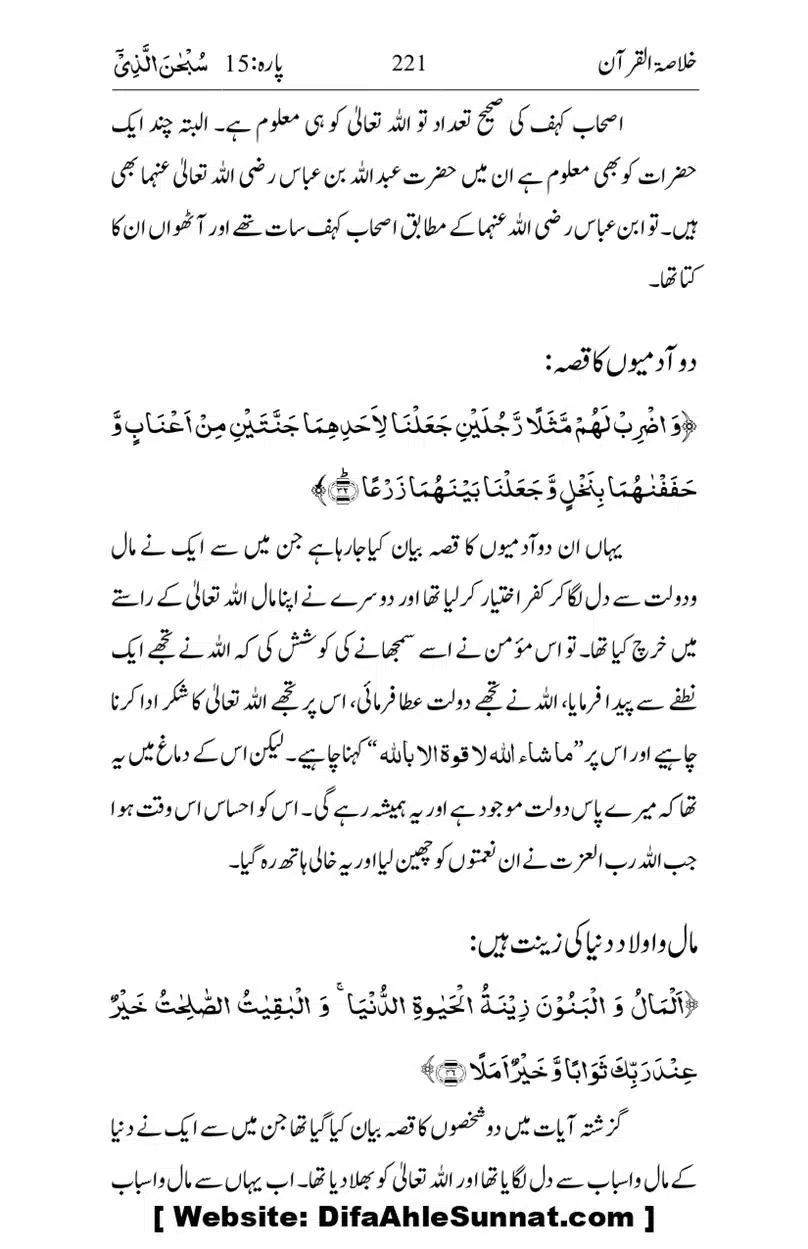 خلاصۃ القرآن 221 پارہ:15 سُبْحٰنَ الَّذِیْۤ
اصحاب کہف کی صحیح تعداد تو اللہ تعالیٰ کو ہی معلوم ہے۔ البتہ چند ایک
حضرات کو بھی معلوم ہے ان میں حضرت عبد اللہ بن عباس رضی اللہ تعالیٰ عنہما بھی
ہیں۔ تو ابن عباس رضی اللہ عنہما کے مطابق اصحاب کہف سات تھے اور آٹھواں ان کا
کتا تھا۔
دو آدمیوں کا قصہ:
﴿وَ اضْرِبْ لَهُمْ مَّثَلًا رَّجُلَيْنِ جَعَلْنَا لِاَحَدِهِمَا جَنَّتَيْنِ مِنْ اَعْنَابٍ وَّ
حَفَفْنٰهُمَا بِنَخْلٍ وَّ جَعَلْنَا بَيْنَهُمَا زَرْعًا ؕ۳۲﴾
یہاں ان دو آدمیوں کا قصہ بیان کیا جا رہا ہے جن میں سے ایک نے مال
ودولت سے دل لگا کر کفر اختیار کر لیا تھا اور دوسرے نے اپنا مال اللہ تعالیٰ کے راستے
میں خرچ کیا تھا۔ تو اس مؤمن نے اسے سمجھانے کی کوشش کی کہ اللہ نے تجھے ایک
نطفے سے پیدا فرمایا، اللہ نے تجھے دولت عطا فرمائی، اس پر تجھے اللہ تعالیٰ کا شکر ادا کرنا
چاہیے اور اس پر ”ماشاء الله لا قوة الا بالله“ کہنا چاہیے۔ لیکن اس کے دماغ میں یہ
تھا کہ میرے پاس دولت موجود ہے اور یہ ہمیشہ رہے گی۔ اس کو احساس اس وقت ہوا
جب اللہ رب العزت نے ان نعمتوں کو چھین لیا اور یہ خالی ہاتھ رہ گیا۔
مال و اولاد دنیا کی زینت ہیں:
﴿اَلْمَالُ وَ الْبَنُوْنَ زِيْنَةُ الْحَيٰوةِ الدُّنْيَا ۚ وَ الْبٰقِيٰتُ الصّٰلِحٰتُ خَيْرٌ
عِنْدَ رَبِّكَ ثَوَابًا وَّ خَيْرٌ اَمَلًا ۴۶﴾
گزشتہ آیات میں دو شخصوں کا قصہ بیان کیا گیا تھا جن میں سے ایک نے دنیا
کے مال واسباب سے دل لگایا تھا اور اللہ تعالیٰ کو بھلا دیا تھا۔ اب یہاں سے مال واسباب
[ Website: DifaAhleSunnat.com ]